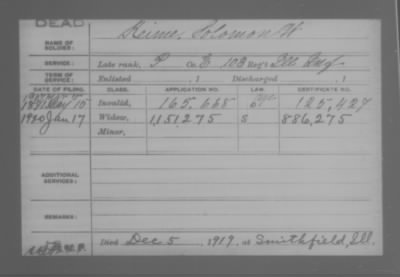 DEAD
NAME OF SOLDIER: Heimer Solomon W
SERVICE: Late rank, P Co. E 103 Reg't Ill Inf
TERM OF SERVICE: Enlisted , 1 Discharged , 1
DATE OF FILING. CLASS. APPLICATION NO. LAW. CERTIFICATE NO.
May 15 Invalid, 165,668 125,427
1920 Jan 17 Widow, 1151275 S 886,275
Minor,
ADDITIONAL SERVICES:
REMARKS:
Died Dec 5, 1919, at Smithfield, Ill.